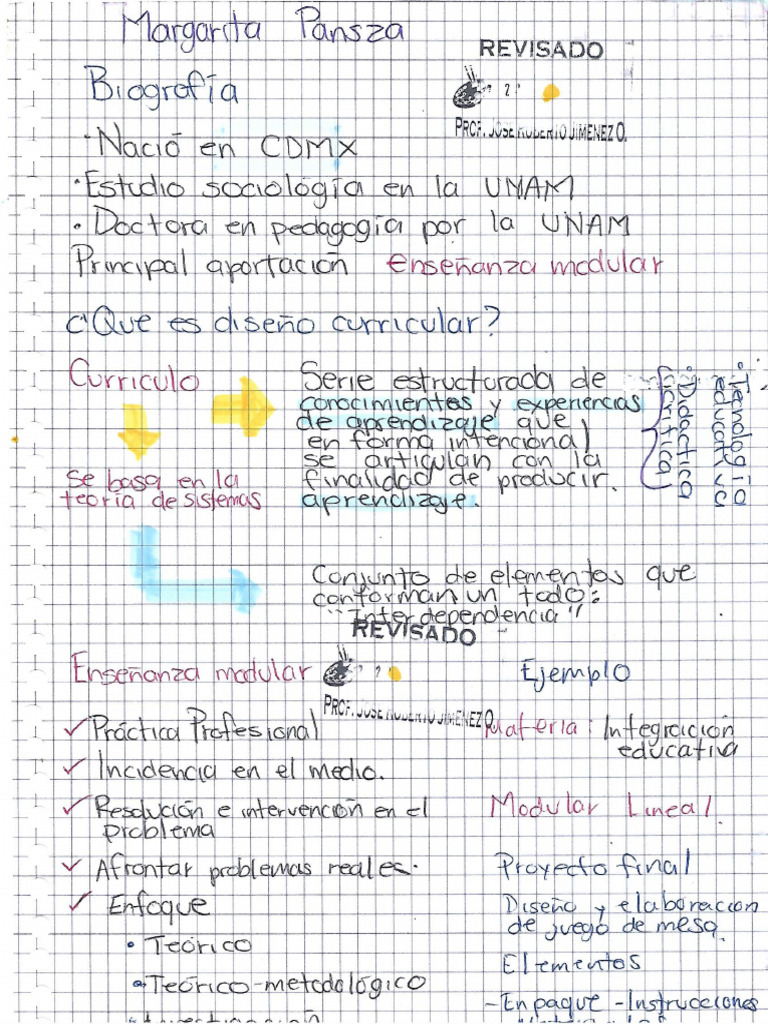 Margarita Pansza
REVISADO
Biografía
PROF. JOSE ROBERTO JIMENEZ O.
• Nació en CDMX
• Estudio sociología en la UNAM
• Doctora en pedagogía por la UNAM
Principal aportación enseñanza modular
¿Que es diseño curricular?
Curriculo
Serie estructurada de
conocimientos y experiencias
de aprendizaje que
en forma intencional
se articulan con la
finalidad de producir.
aprendizaje.
• Tecnología
educativa
• Didactica
se basa en la
teoría de sistemas
Conjunto de elementos que
conforman un todo:
"Interdependencia"
REVISADO
Enseñanza modular
PROF. JOSE ROBERTO JIMENEZ O.
✓ Práctica Profesional
✓ Incidencia en el medio.
✓ Resolución e intervención en el
problema
✓ Afrontar problemas reales.
✓ Enfoque
• Teórico
• Teórico-metodológico
Ejemplo
Materia: Integración
educativa
Modular Lineal.
Proyecto final
Diseño y elaboración
de juego de mesa.
Elementos
- Enpaque - Instrucciones